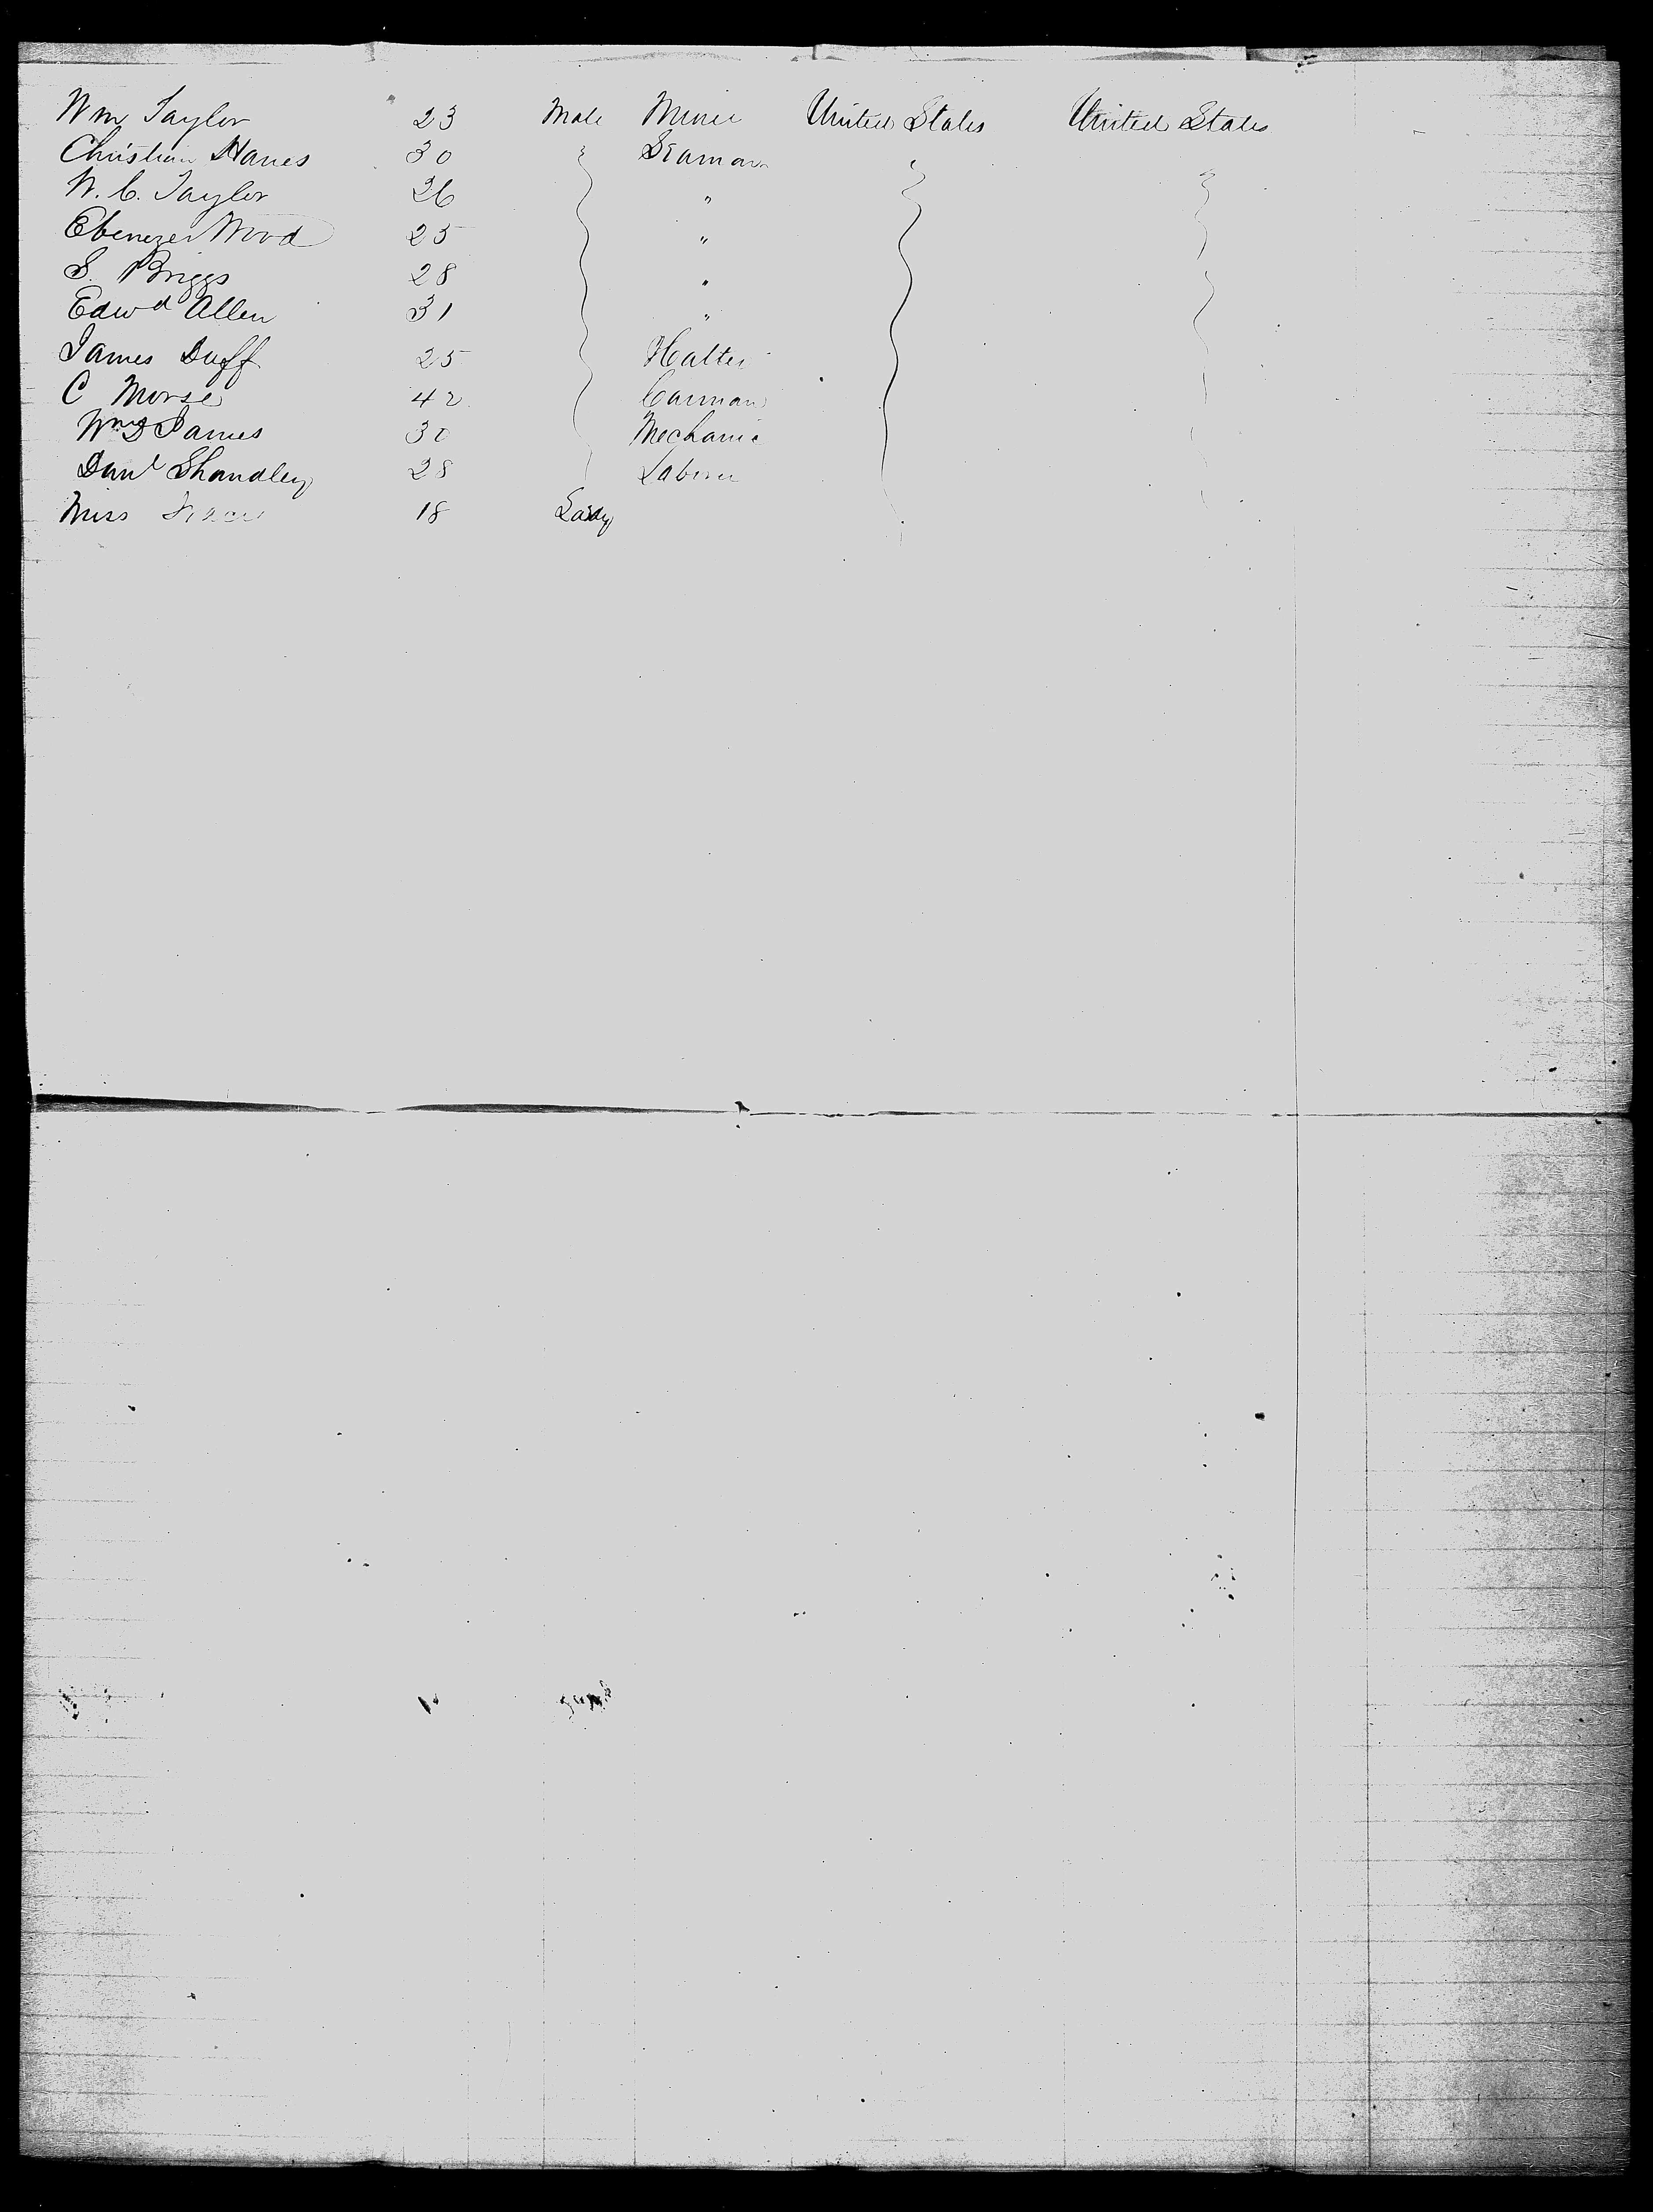 Wm Taylor 23 Male Miner United States United States
Christian Hanes 30 Seaman
W. C. Taylor 26 "
Ebenezer Wood 25 "
S. Briggs 28 "
Edwd Allen 31 "
James Duff 25 Hatter
C Morse 42 Carman
Wm D James 30 Mechanic
Danl Shandley 28 Laborer
Miss 18 Lady